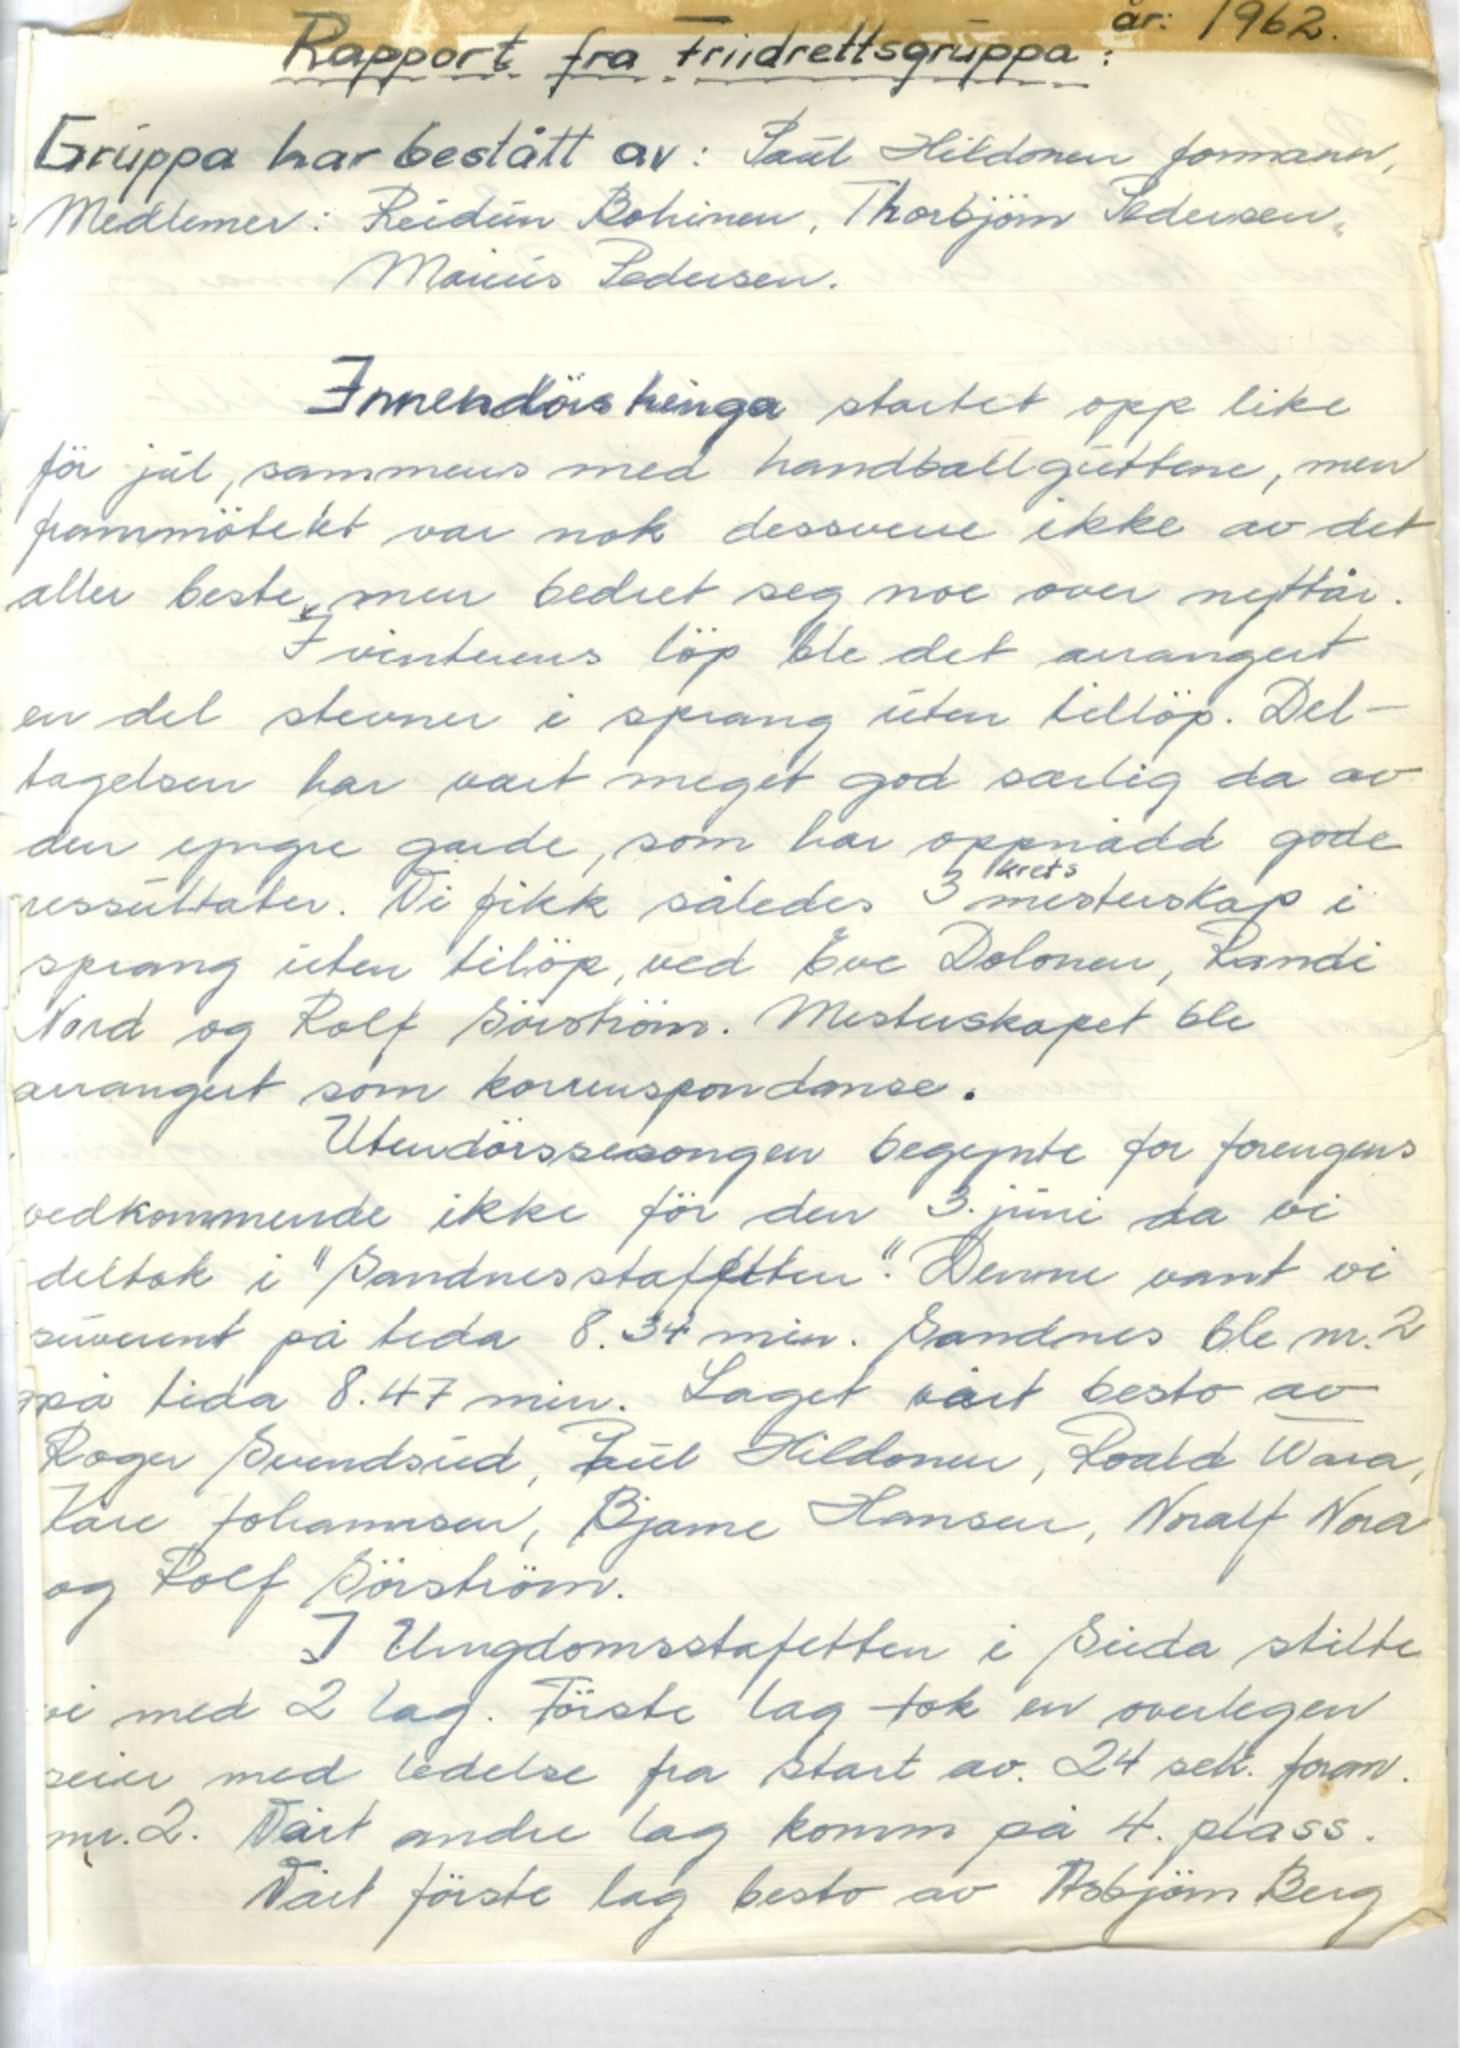 år: 1962.
Rapport fra Friidrettsgruppa:
Gruppa har bestått av: Paul Hildonen formann,
Medlemer: Reidun Bohinen, Thorbjörn Pedersen,
Marius Pedersen.
Innendörs treninga startet opp like
för jul, sammens med handballguttene, men
frammötet var nok dessverre ikke av det
aller beste, men bedret seg noe over nyttår.
I vinterens löp ble det arrangert
en del stevner i sprang uten tillöp. Del-
tagelsen har vært meget god særlig da av
den yngre garde, som har oppnådd gode
ressultater. Vi fikk således 3 kretsmesterskap i
sprang uten tilöp, ved Eve Dolonen, Randi
Nord og Rolf Sörström. Mesterskapet ble
arrangert som korrenspondanse.
Utendörssesongen begynte for forengens
vedkommende ikke för den 3. juni da vi
deltok i "Sandnesstafetten". Denne vant vi
suverent på tida 8.34 min. Sandnes ble nr. 2
på tida 8.47 min. Laget vårt besto av
Roger Svendsud, Paul Hildonen, Roald Wara,
Kåre Johannsen, Bjarne Hansen, Noralf Nora
og Rolf Sörström.
I Ungdomsstafetten i Seida stilte
vi med 2 lag. Förste lag tok en overlegen
seier med ledelse fra start av. 24 sek. foran.
nr. 2. Vårt andre lag komm på 4. plass.
Vårt förste lag besto av Asbjörn Berg